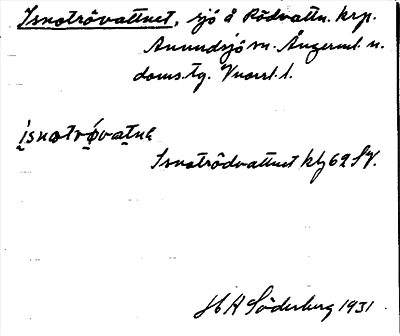 Isnotrövattnet, sjö å Rödvattn. krp.
Anundsjö sn. Ångerml. n.
doms.tg. Vnorrl. l.
i̱snotrǿ̱vatnɛ
Isnotrödvattnet kbl 62 SV.
H A Söderberg 1931